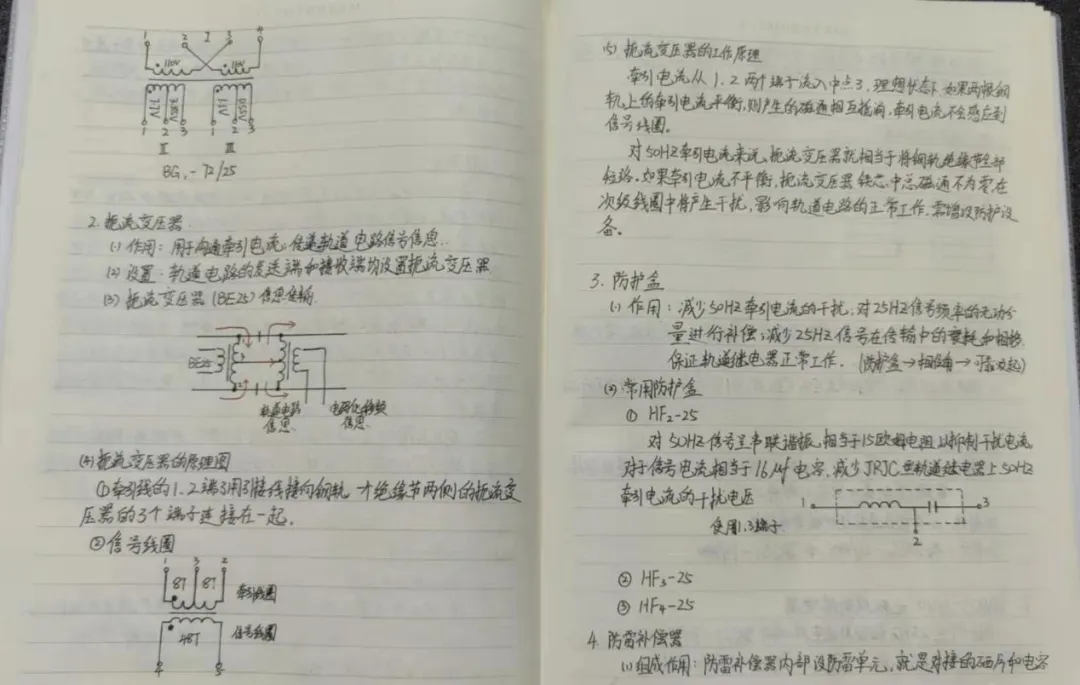 1 2 I 3 4
110V 110V
1 2 3 1 2 3
II III
BG₁-72/25
2. 扼流变压器
(1) 作用：用于沟通牵引电流，传递轨道电路信号信息.
(2) 设置：轨道电路的发送端和接收端均设置扼流变压器
(3) 扼流变压器 (BE25) 信息传输.
BE25
轨道电路 电码化
信息 信息.
(4) 扼流变压器的原理图
①牵引线的1.2端子用引接线接向钢轨，才绝缘节两侧的扼流变
压器的3个端子连接在一起。
②信号线圈
1 3 2
8T 8T 牵引线圈
48T 信号线圈
4 5
(5) 扼流变压器的工作原理
牵引电流从1.2两个端子流入中点3，理想状态下如果两根钢
轨上的牵引电流平衡，则产生的磁通相互抵消，牵引电流不会感应到
信号线圈。
对50HZ牵引电流来说，扼流变压器就相当于将钢轨绝缘节全部
短路. 如果牵引电流不平衡，扼流变压器铁芯中总磁通不为零在
次级线圈中将产生干扰，影响轨道电路的正常工作. 需增设防护设
备。
3. 防护盒
(1) 作用：减少50HZ牵引电流的干扰，对25HZ信号频率的无功分
量进行补偿，减少25HZ信号在传输中的衰耗和相移.
保证轨道继电器正常工作. (防护盒→相位角→可靠吸起)
(2) 常用防护盒
① HF₂-25
对50HZ信号呈串联谐振，相当于15欧姆电阻，以抑制干扰电流
对于信号电流相当于16μf电容，减少JRJC型轨道继电器上50HZ
牵引电流的干扰电压
使用1.3端子
1 3
2
② HF₃-25
③ HF₄-25
4. 防雷补偿器
(1)组成作用：防雷补偿器内部设防雷单元，就是对接的硒片和电容